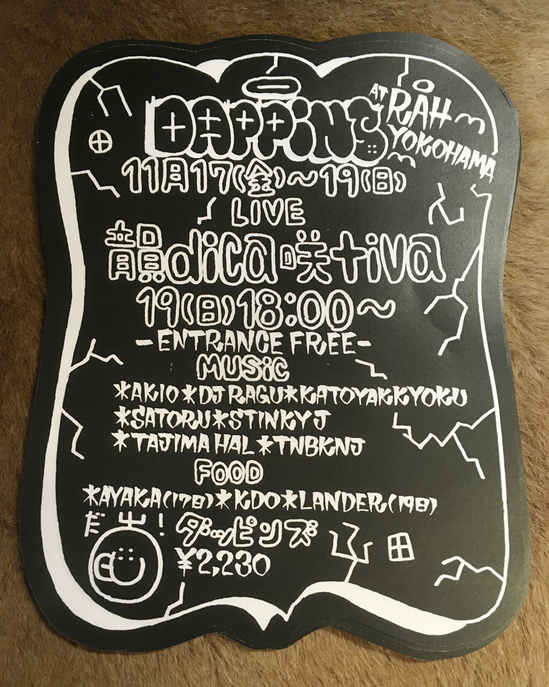 DAPPiNS AT RAH YOKOHAMA
11月17(金)〜19(日)
LIVE
韻dica咲tiva
19(日)18:00〜
-ENTRANCE FREE-
MUSiC
*AKIO*DJ RAGU*KATOYAKKYOKU
*SATORU*STINKY J
*TAJIMA HAL*TNBKNJ
FOOD
*AYAKA(17日)*KDO*LANDER(19日)
ダッピンズ
¥2,230